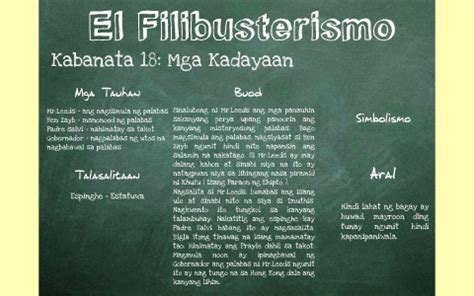 El Filibusterismo
Kabanata 18: Mga Kadayaan
Mga Tauhan
Mr.Leeds - ang nagsimula ng palabas
Ben Zayb - manonood ng palabas
Padre Salvi - nahimatay sa takot
Gobernador - nagpalabas ng utos na
nagbabawal sa palabas.
Talasalitaan
Espinghe - Estatwa
Buod
Sinalubong ni Mr.Leeds ang mga panauhin
sa kanyang perya upang panoorin ang
kanyang misteryosong palabas. Bago
magsimula ang palabas, nagsiyasat si Ben
Zayb ngunit hindi nya nahanap ang
Salamin na nakatago. Si Mr.Leeds ay may
dalang kahon at Sinabi niya na ito ay
natagpuan niya sa libingang nasa piramid
ni Khufu ( Isang Paraon ng Ehipto ).
Nagsalita si Mr.Leeds, lumabas ang isang
ulo at sinabi nito na siya si Imuthis.
Nagkwento ito tungkol sa kanyang
talambuhay. Nakatitig ang espinghe kay
Padre Salvi habang ito ay nagsasalita.
Bigla itong tinawag na isang mamamatay
tao. Hinimatay ang Prayle dahil sa takot.
Magmula noon ay ipinagbawal ng
Gobernador ang palabas ni Mr.Leeds ngunit
ito ay nag tungo na sa Hong Kong dala ang
kanyang lihim.
Simbolismo
Aral
Hindi lahat ng bagay ay
huwad, mayroon ding
tunay ngunit hindi
kapanipaniwala.